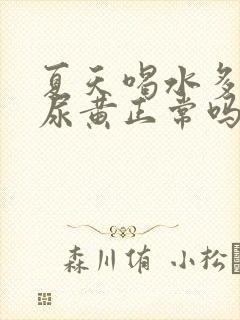 夏天喝水多
尿黄正常吗
森川侑 小松